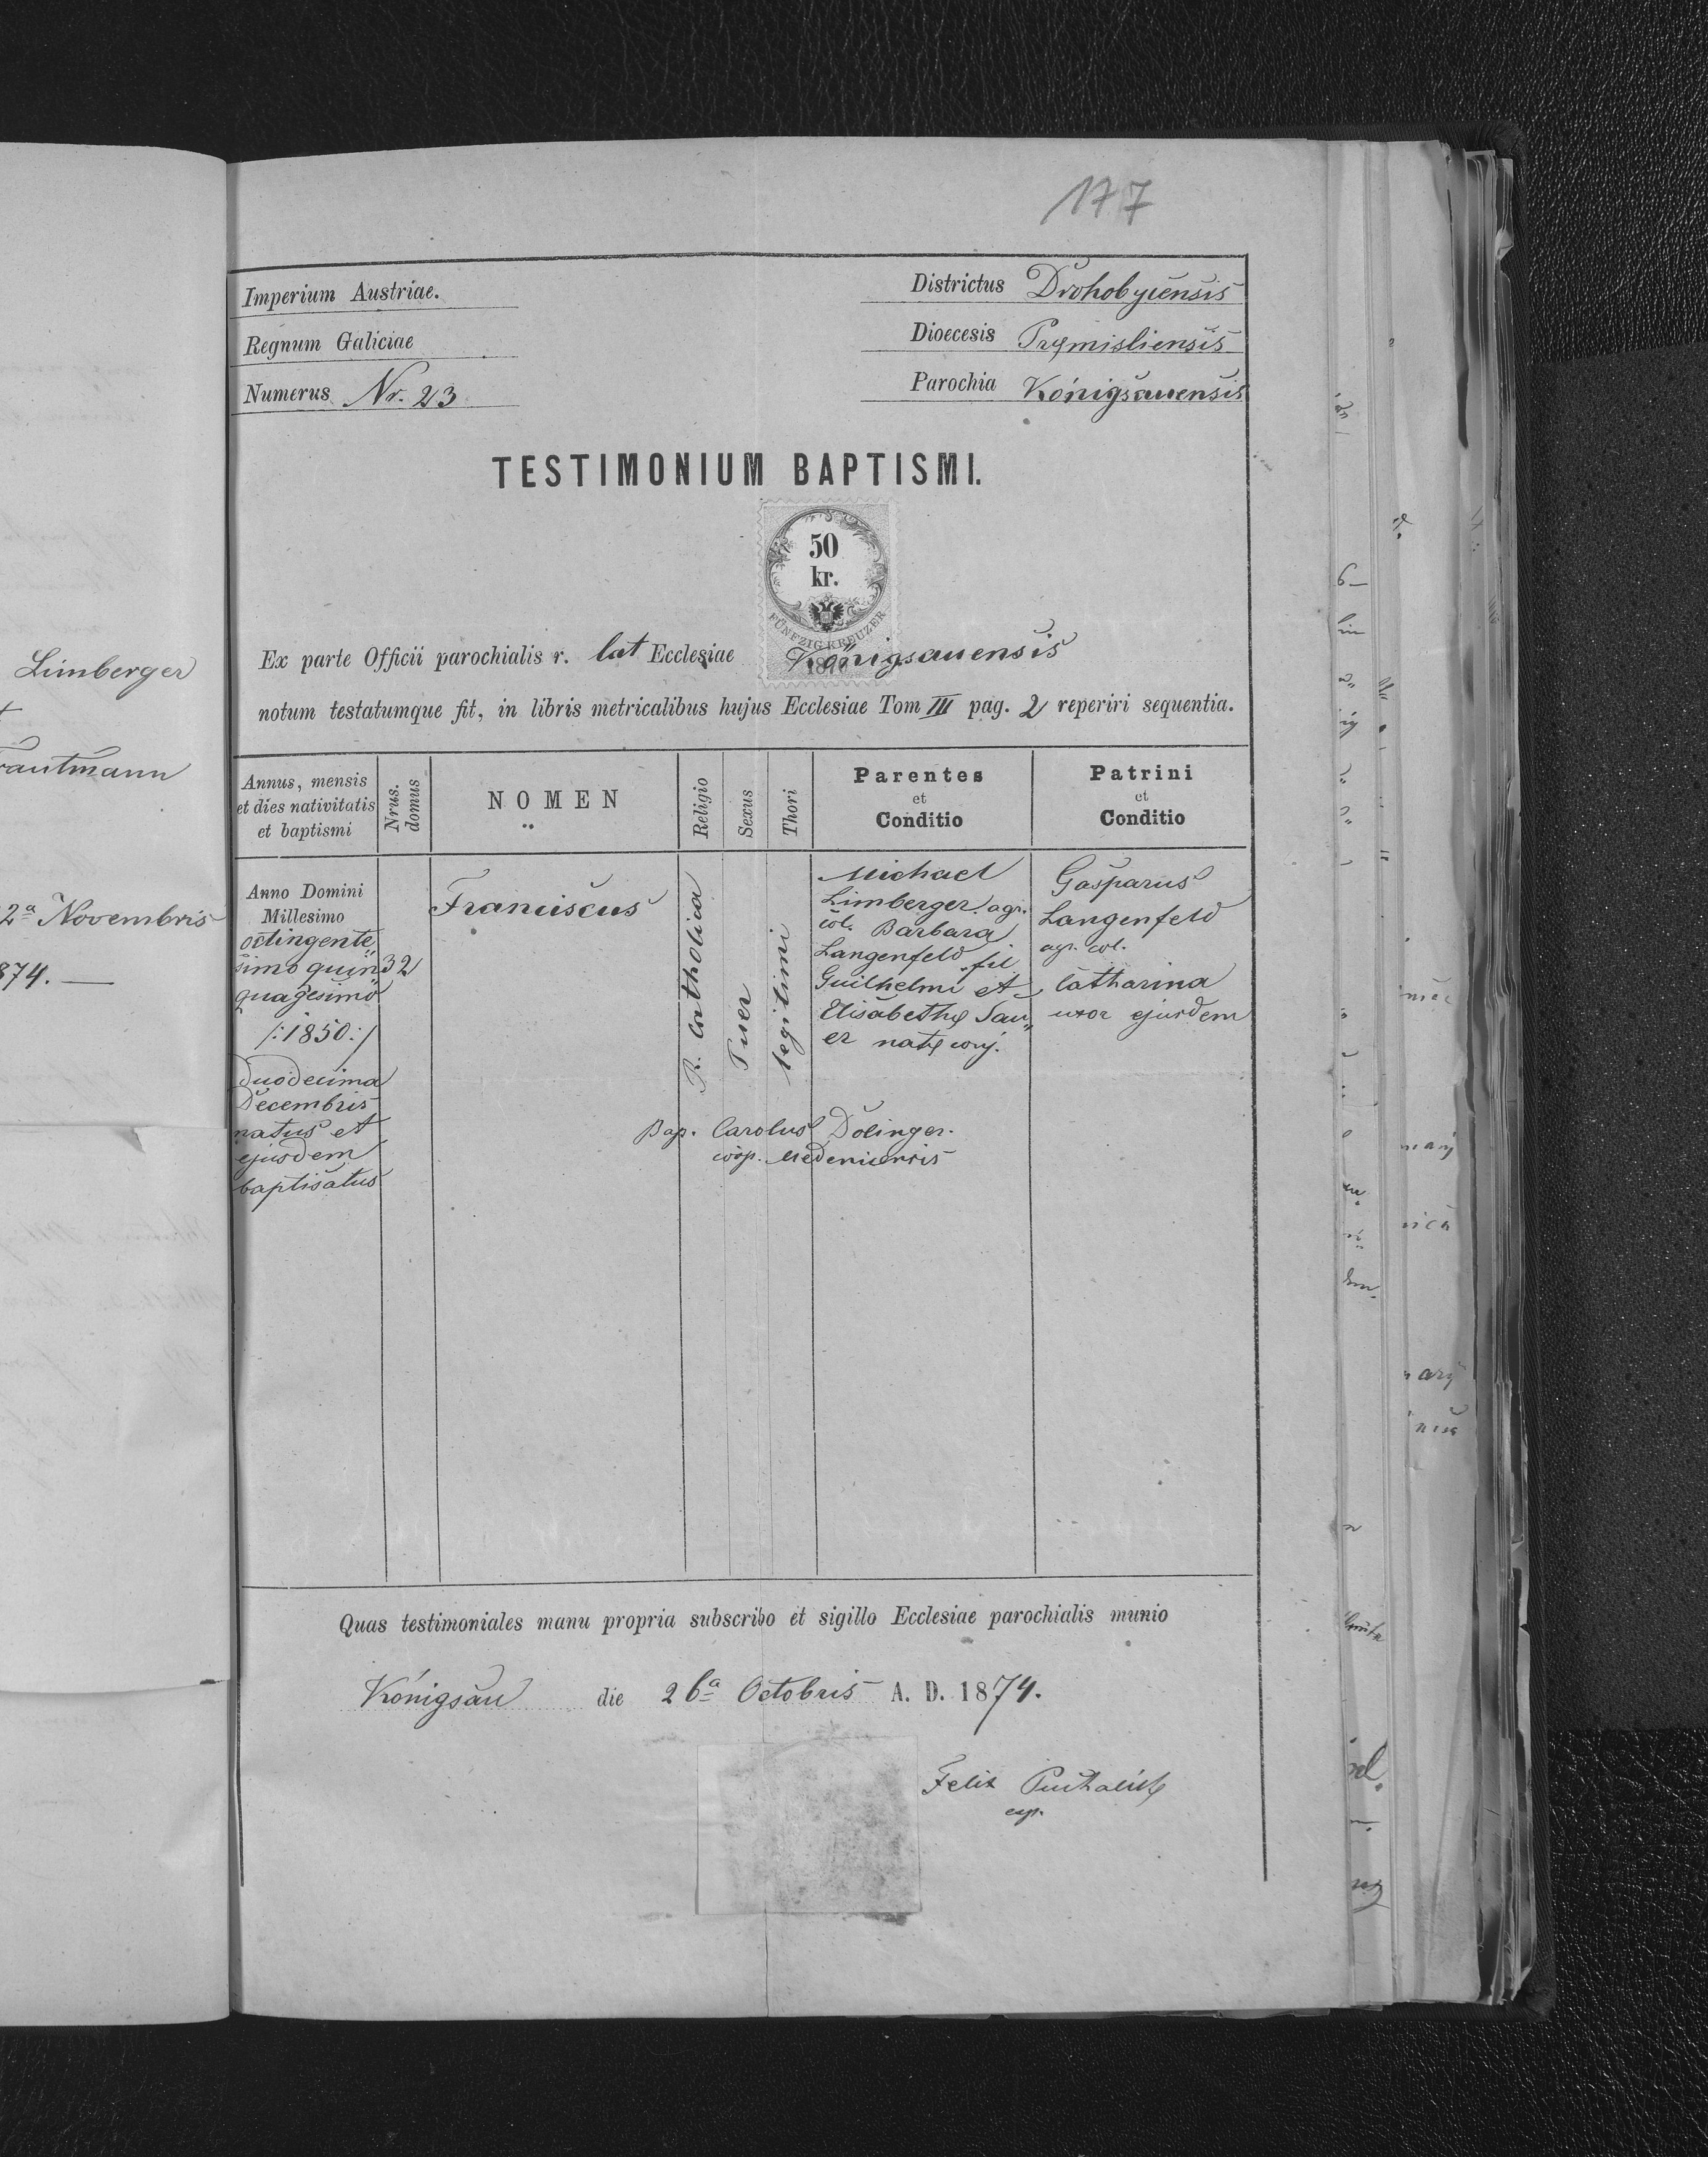 177
Imperium Austriae.
Regnum Galiciae
Numerus Nr. 23
Districtus Drohobycensis
Dioecesis Prymisliensis
Parochia Königsauensis
TESTIMONIUM BAPTISMI.
50
kr.
FÜNFZIG KREUZER
Ex parte Officii parochialis r. lat Ecclesiae Königsauensis
notum testatumque fit, in libris metricalibus hujus Ecclesiae Tom III pag. 2 reperiri sequentia.
Annus, mensis
et dies nativitatis
et baptismi
Nrus.
domus
NOMEN
Religio
Sexus
Thori
Parentes
et
Conditio
Patrini
et
Conditio
Anno Domini
Millesimo
octingente„
simo quin„
quagesimo
/:1850:/
Duodecima
Decembris
natus et
ejusdem
baptisatus
32
Franciscus
R. Catholica
Puer
legitimi
Michael
Limberger agr.
col. Barbara
Langenfeld fil.
Guilhelmi et
Elisabethę Sau„
er natę conj.
Gasparus
Langenfeld
agr. col.
Catharina
uxor ejusdem
Bap. Carolus Dolinger.
coop. Medenicensis
Quas testimoniales manu propria subscribo et sigillo Ecclesiae parochialis munio
Königsau die 26a Octobris A. D. 1874.
Felix
exp.
Limberger
rautmann
2a Novembris
874. —